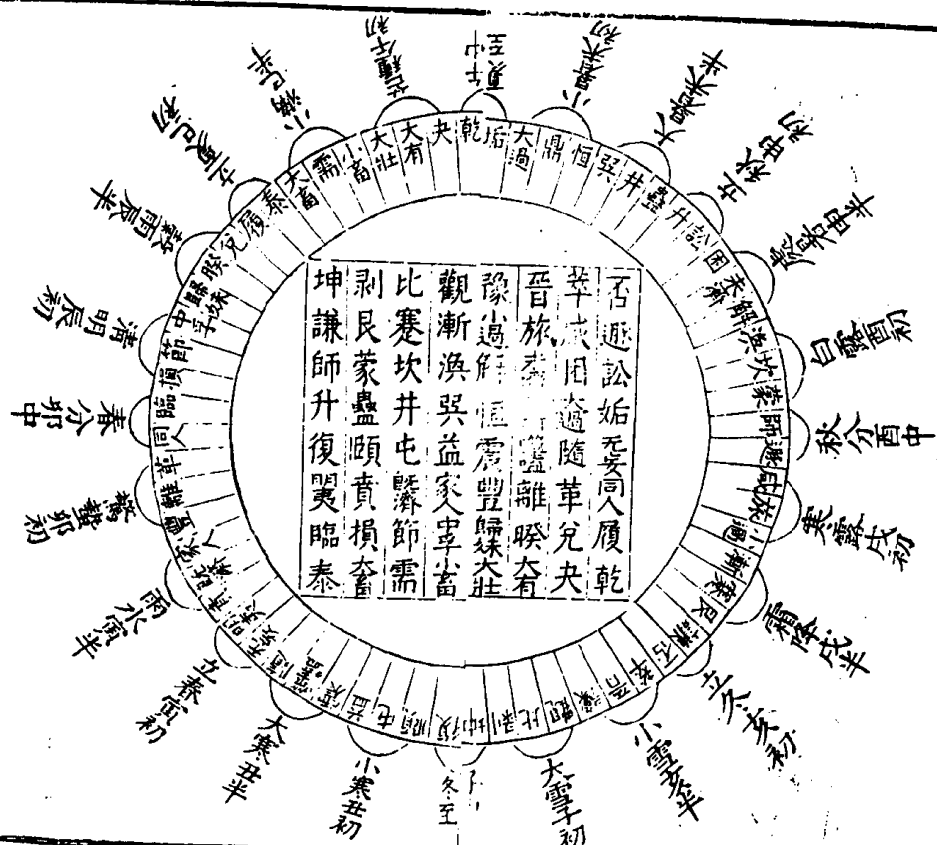 夏至午中
小暑未初
大暑未半
立秋申初
處暑申半
白露酉初
秋分酉中
寒露戌初
霜降戌半
立冬亥初
小雪亥半
大雪子初
冬至
小寒丑初
大寒丑半
立春寅初
雨水寅半
驚蟄卯初
春分卯中
清明辰初
穀雨辰半
立夏巳初
小滿巳半
芒種午初
姤 大過 鼎 恒 巽 井 蠱 升 訟 困 未濟 解 渙 坎 蒙 師 遯 咸 旅 小過 漸 蹇 艮 謙 否 萃 晉 豫 觀 比 剥 坤 復 頤 屯 益 震 噬嗑 隨 无妄 明夷 賁 既濟 家人 豐 離 革 同人 臨 損 節 中孚 歸妹 睽 兌 履 泰 大畜 需 小畜 大壯 大有 夬 乾
否遯訟姤无妄同人履乾
萃咸困大過隨革兌夬
晉旅嗑離睽大有
豫小過解恒震豐歸妹大壯
觀漸渙巽益家人中孚小畜
比蹇坎井屯既濟節需
剥艮蒙蠱頤賁損大畜
坤謙師升復明夷臨泰